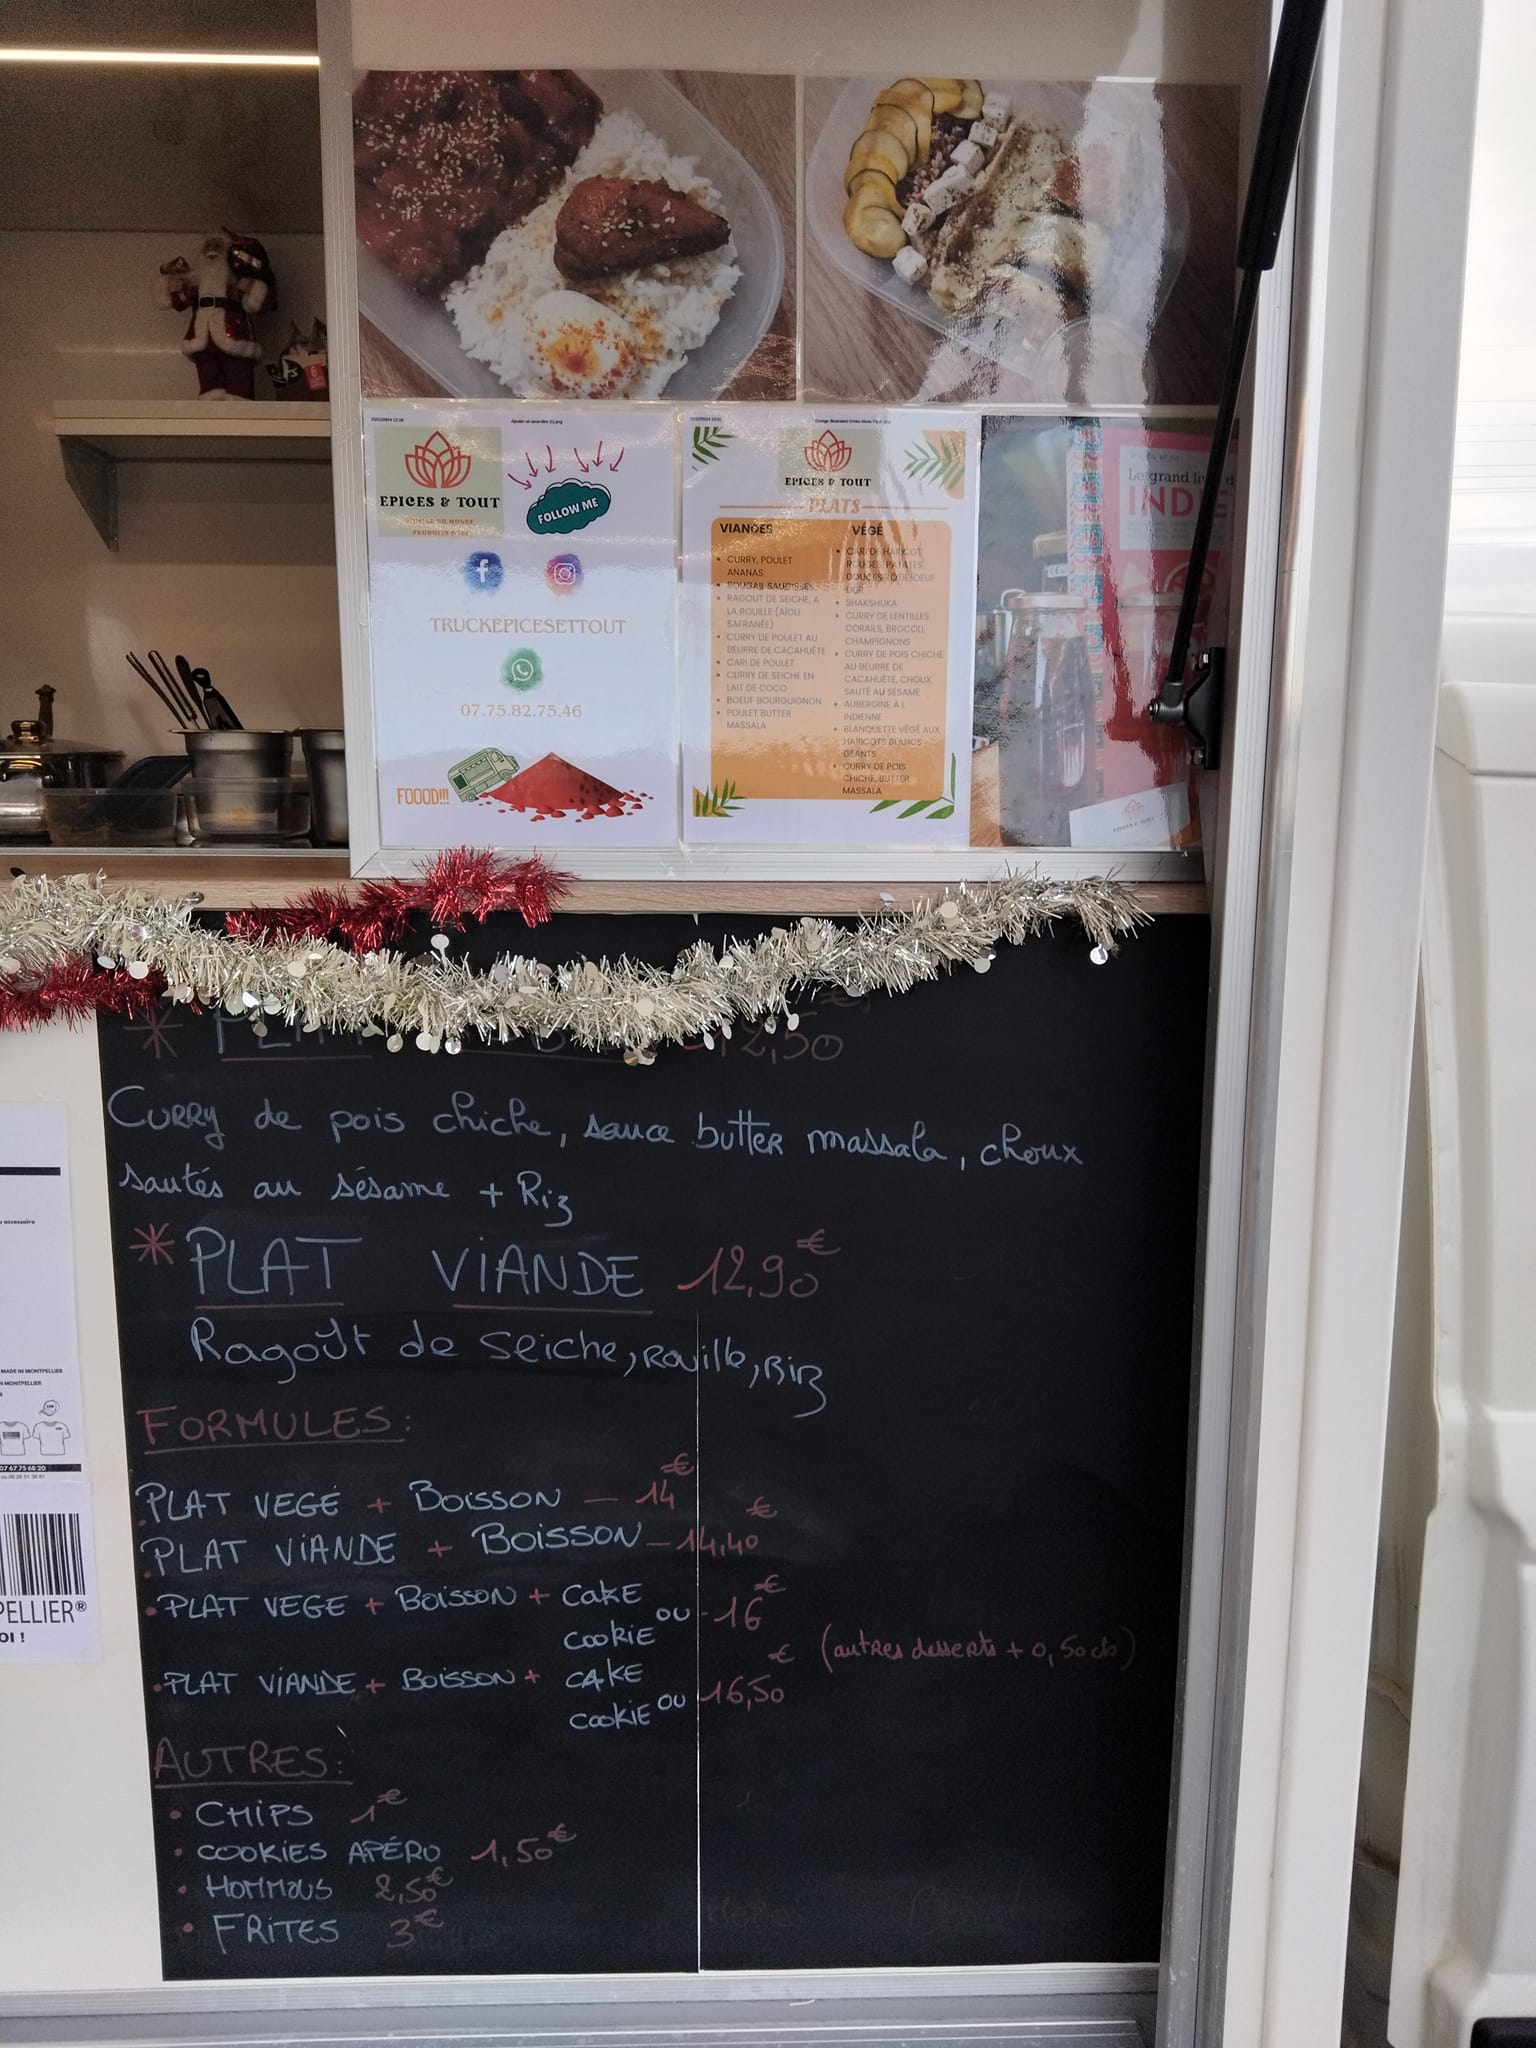 EPICES & TOUT
CUISINE DU MONDE,
FOLLOW ME
TRUCKEPICESETTOUT
07.75.82.75.46
FOOOD!!!
EPICES & TOUT
PLATS
VIANDES
CURRY, POULET
ANANAS
ROUGAIL SAUCISSES
RAGOUT DE SEICHE, A
LA ROUILLE (AÏOLI
SAFRANÉE)
CURRY DE POULET AU
BEURRE DE CACAHUÈTE
CARI DE POULET
CURRY DE SEICHE EN
LAIT DE COCO
BOEUF BOURGUIGNON
POULET BUTTER
MASSALA
VÉGÉ
CARI DE HARICOT
ROUGES, PATATES
DOUCES ROTIE/OEUF
DUR
SHAKSHUKA
CURRY DE LENTILLES
CORAILS, BROCOLI,
CHAMPIGNONS
CURRY DE POIS CHICHE
AU BEURRE DE
CACAHUÈTE, CHOUX
SAUTÉ AU SÉSAME
AUBERGINE À L
INDIENNE
BLANQUETTE VÉGÉ AUX
HARICOTS BLANCS
GÉANTS
CURRY DE POIS
CHICHE, BUTTER
MASSALA
Le grand
INDE
EPICES & TOUT
* PLAT 12,50€
Curry de pois chiche, sauce butter massala, choux
sautés au sésame + Riz
* PLAT VIANDE 12,90€
Ragoût de seiche, rouille, riz
FORMULES:
PLAT VEGÉ + BOISSON — 14€
PLAT VIANDE + BOISSON — 14,40€
• PLAT VEGE + BOISSON + CAKE
COOKIE OU - 16€
• PLAT VIANDE + BOISSON + CAKE
COOKIE OU 16,50€
(autres desserts + 0,50cts)
AUTRES:
• CHIPS 1€
• COOKIES APÉRO 1,50€
• HOMMOUS 2,50€
• FRITES 3€
accessoire
MADE IN MONTPELLIER
N MONTPELLIER
07 67 75 68 20
PELLIER®
OI !